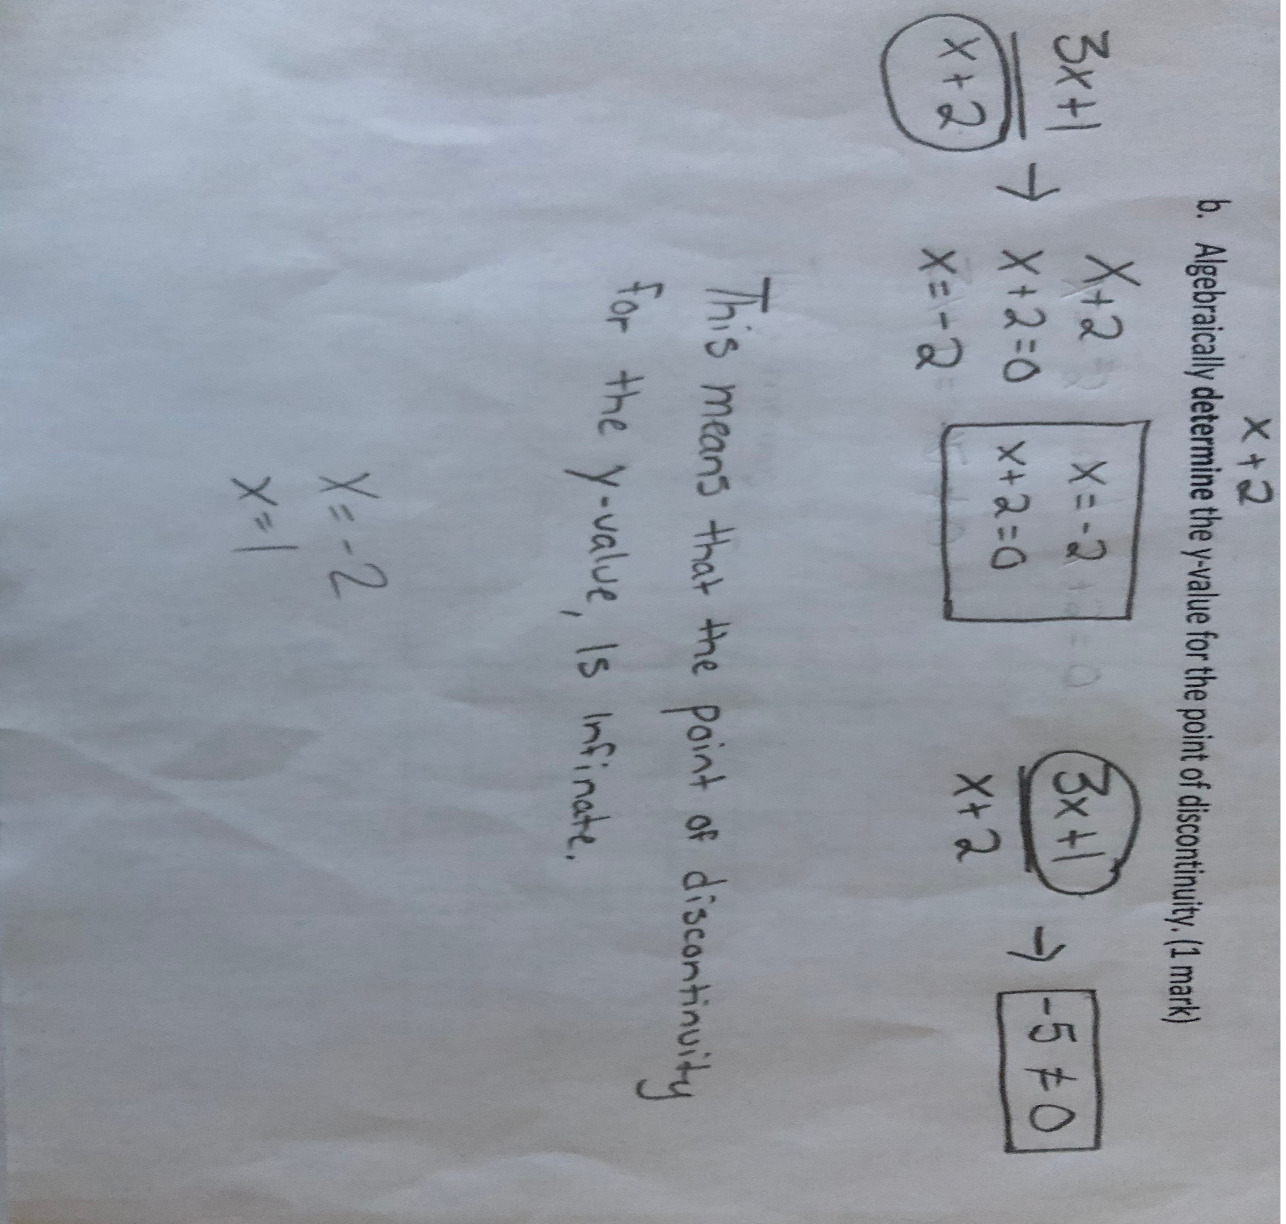 x+2
b. Algebraically determine the y-value for the point of discontinuity. (1 mark)
3x+1
x+2
→
x+2
x+2=0
x=-2
x=-2
x+2=0
3x+1
x+2
→
-5≠0
This means that the point of discontinuity
for the y-value, is infinate.
x=-2
x=1